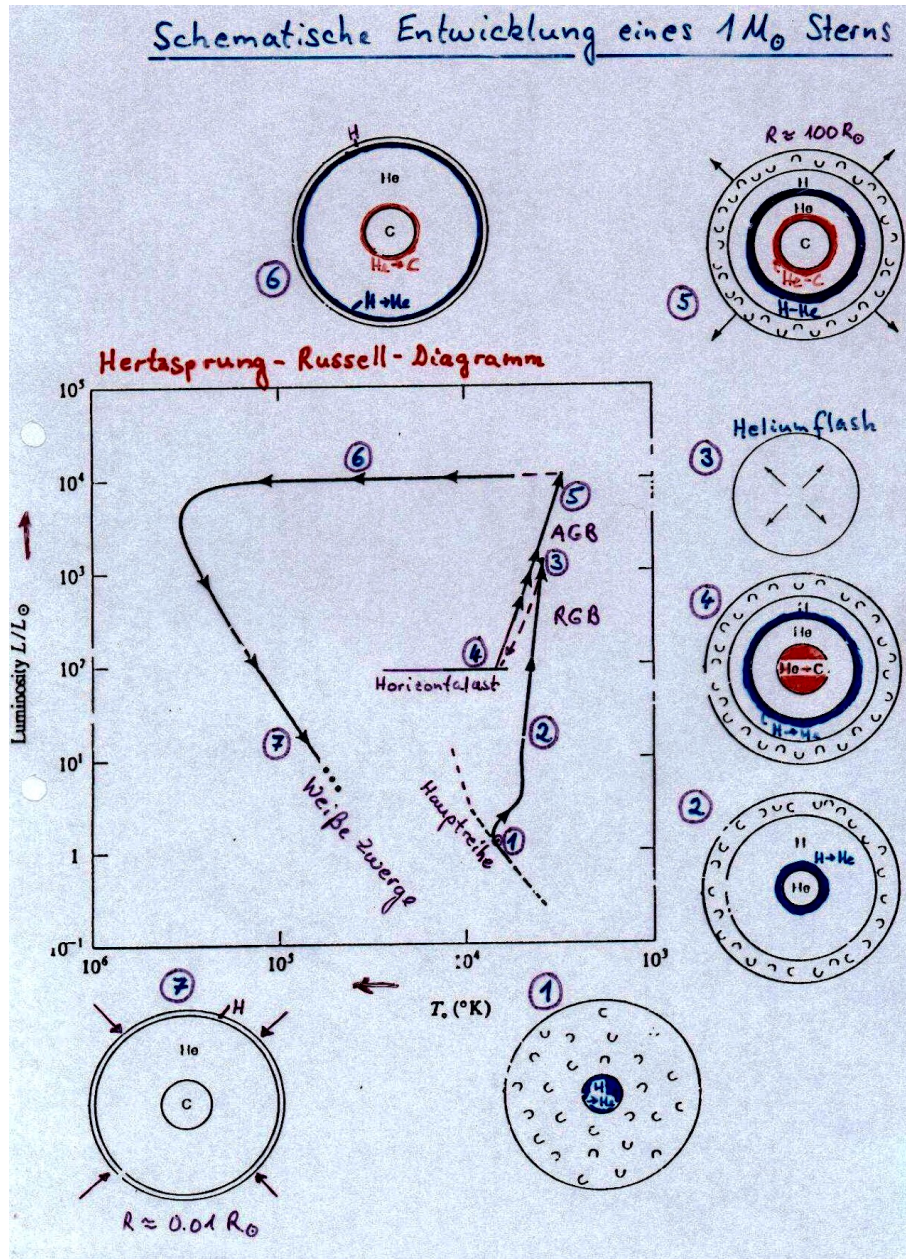 Schematische Entwicklung eines 1 M⊙ Sterns
H
He
C
He→C
H→He
6
R ≈ 100 R⊙
H
He
C
He-C
H-He
5
Hertzsprung-Russell-Diagramm
Heliumflash
3
10⁵
10⁴
10³
10²
10¹
1
10⁻¹
Luminosity L/L⊙
6
5
AGB
3
RGB
4
Horizontalast
2
7
Weiße Zwerge
Hauptreihe
1
10⁶
10⁵
10⁴
10³
Tₑ (°K)
4
H
He
He→C
H→He
2
H
H→He
He
7
H
He
C
R ≈ 0.01 R⊙
1
H
→He